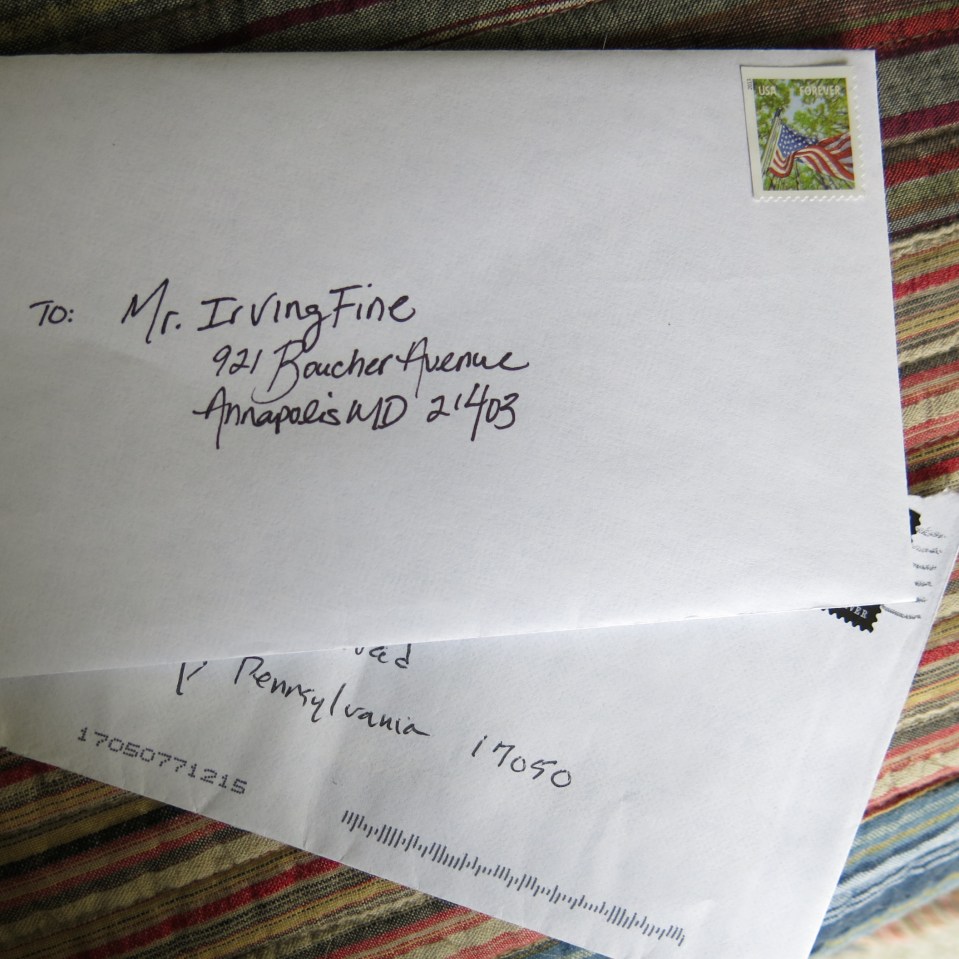 2013
USA FOREVER
To: Mr. Irving Fine
921 Boucher Avenue
Annapolis MD 21403
Pennsylvania 17050
17050771215